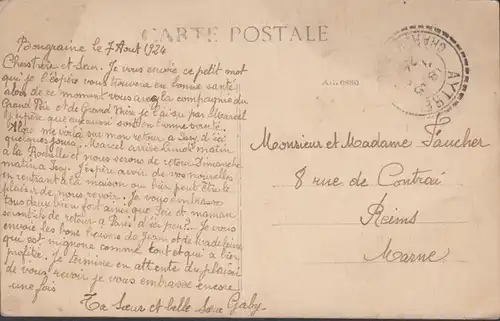 CARTE POSTALE
Bongraine le 7 Aout 1924
Cher frère et Sœur. Je vous envoie ce petit mot
qui je l'espère vous trouvera en bonne santé
de ce moment vous avez la compagnie du
Grand Père et de Grand Mère je l'ai su par Marcel
j'espère que eux aussi sont en bonne santé.
Alors me voilà sur mon retour a Issy d'ici
quelques jours. Marcel arrive lundi matin
à la Rochelle et nous serons de retour Dimanche
matin a Issy. J'espère avoir de vos nouvelles
en rentrant à la maison ou bien peut être le
plaisir de nous revoir. Je vous embrasse
tous deux bien fort ainsi que Père et maman
seront ils de retour a Paris d'ici peu? Je vous
envoie les bons baisers de Jean et de Madeleine
qui est mignonne comme tout et qui a bien
profité. Je termine en attente du plaisir
de vous revoir je vous embrasse encore
une fois
Ta Sœur et belle Sœur Gaby
ADRESSE
AYTRÉ
Monsieur et Madame Faucher
8 rue de Contrai
Reims
Marne